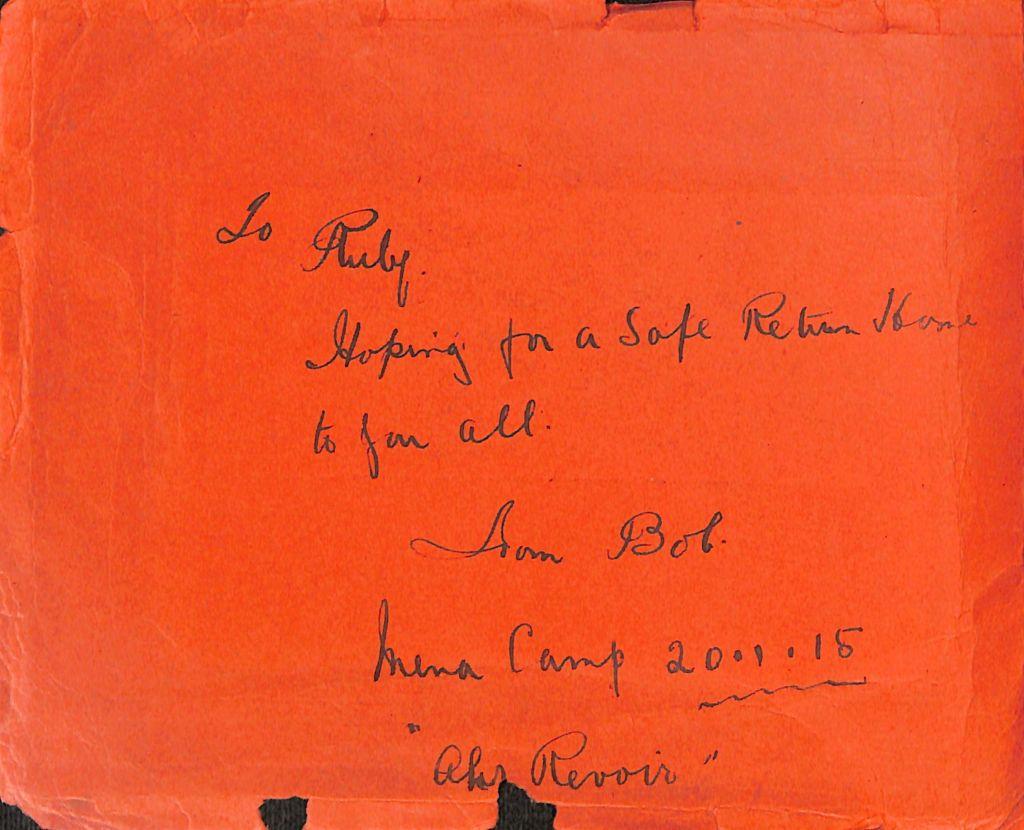 To Ruby.
Hoping for a Safe Return Home
to you all.
From Bob.
Mena Camp 20.1.15
"Ahr Revoir"